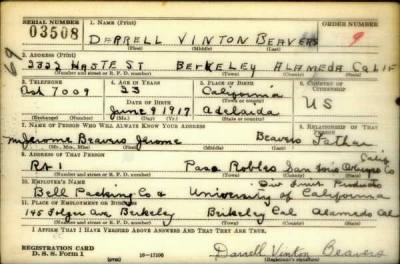 SERIAL NUMBER 1. NAME (Print) ORDER NUMBER
03508 DARRELL VINTON BEAVERS 9
(First) (Middle) (Last)
2. ADDRESS (Print)
2322 HASTE ST BERKELEY ALAMEDA CALIF
(Number and street or R. F. D. number) (Town) (County) (State)
3. TELEPHONE 4. AGE IN YEARS 5. PLACE OF BIRTH 6. COUNTRY OF CITIZENSHIP
Ash 7009 23 California
DATE OF BIRTH (Town or county) US
June 9 1917 Adelaida
(Exchange) (No.) (Mo.) (Day) (Yr.) (State or country)
7. NAME OF PERSON WHO WILL ALWAYS KNOW YOUR ADDRESS 8. RELATIONSHIP OF THAT PERSON
Mr Jerome Beavers Jerome Beavers Father
(Mr., Mrs., Miss) (First) (Middle) (Last)
9. ADDRESS OF THAT PERSON Calif
Rt 1 Paso Robles San Luis Obispo Co
(Number and street or R. F. D. number) (Town) (County) (State)
10. EMPLOYER'S NAME Div Fruit Products
Bell Packing Co & University of California
11. PLACE OF EMPLOYMENT OR BUSINESS
145 Folger Ave Berkeley Berkeley Cal Alameda Cal
(Number and street or R. F. D. number) (Town) (County) (State)
I AFFIRM THAT I HAVE VERIFIED ABOVE ANSWERS AND THAT THEY ARE TRUE.
REGISTRATION CARD
D. S. S. Form 1 (over) 16-17105 Darrell Vinton Beavers
(Registrant's signature)